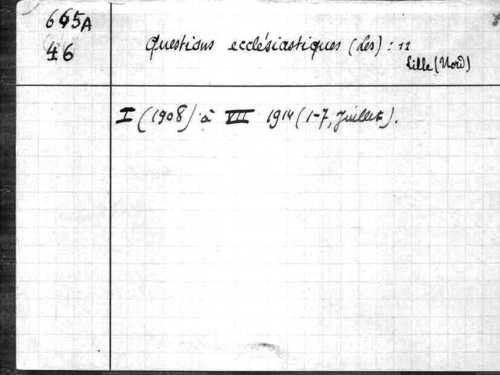 665A
46
Questions ecclésiastiques (Les) : 12
Lille (Nord)
I (1908) à VII 1914 (1-7, Juillet).